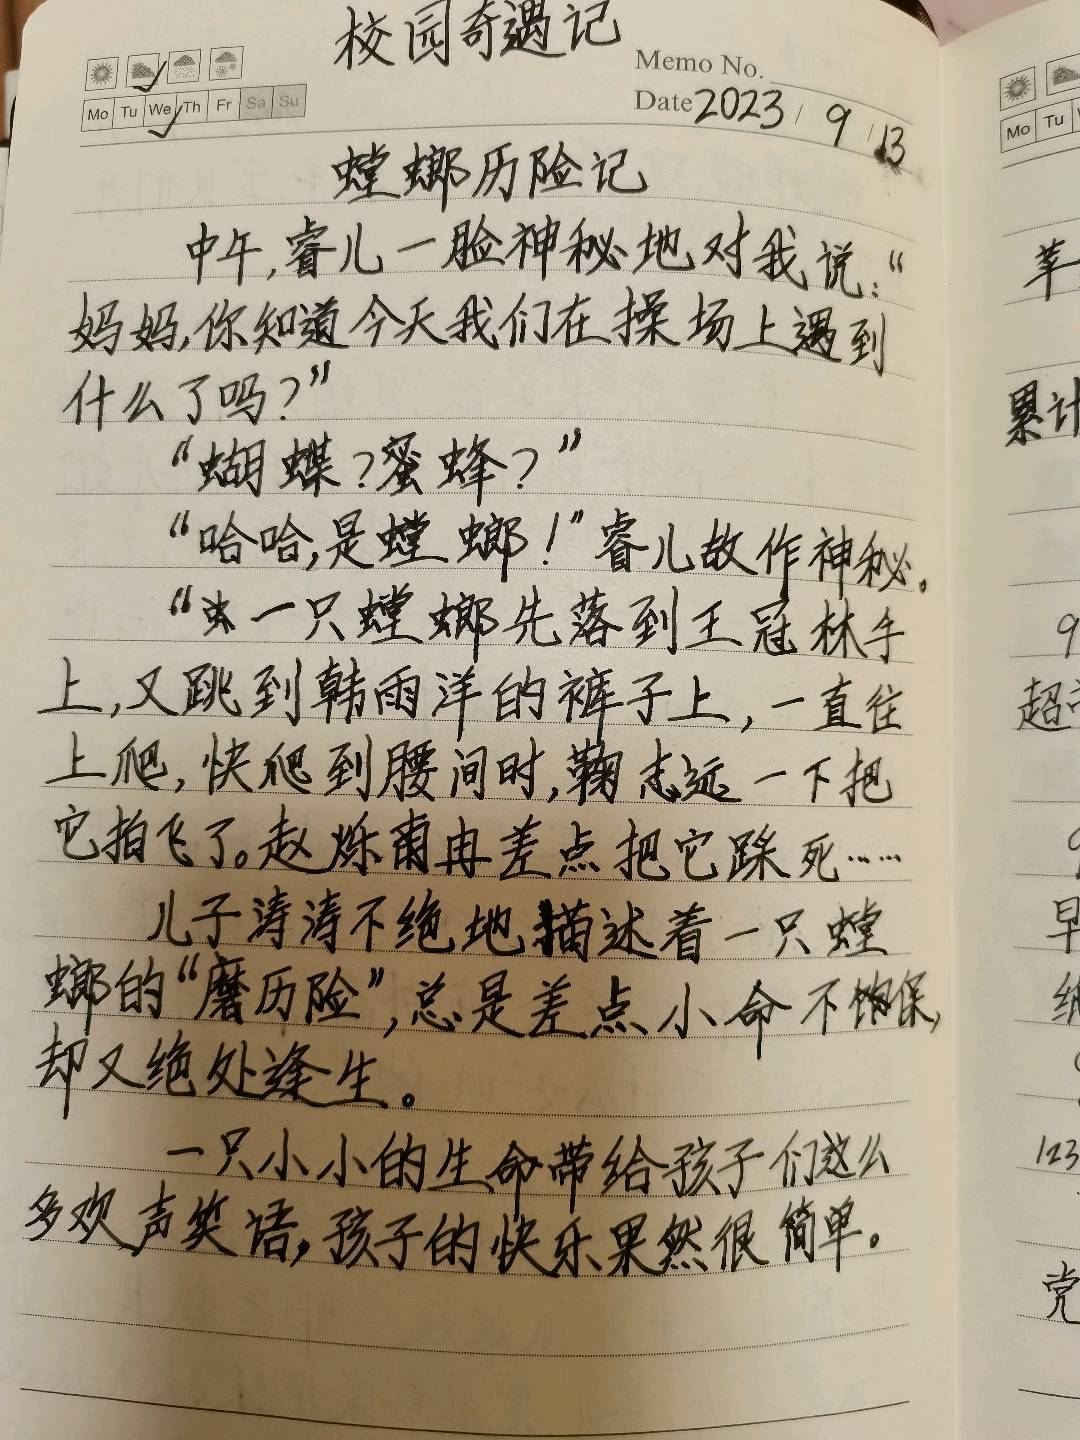 校园奇遇记
Memo No.
Mo Tu We Th Fr Sa Su
Date 2023 / 9 / 13
螳螂历险记
中午,睿儿一脸神秘地对我说:“
妈妈,你知道今天我们在操场上遇到
什么了吗?”
“蝴蝶?蜜蜂?”
“哈哈,是螳螂!”睿儿故作神秘。
“一只螳螂先落到王冠林手
上,又跳到韩雨洋的裤子上,一直往
上爬,快爬到腰间时,鞠志远一下把
它拍飞了。赵烁冉差点把它踩死……
儿子涛涛不绝地描述着一只螳
螂的“磨历险”,总是差点小命不保,
却又绝处逢生。
一只小小的生命带给孩子们这么
多欢声笑语,孩子的快乐果然很简单。
Mo Tu
苹
累计
9
超
9
早
123
党